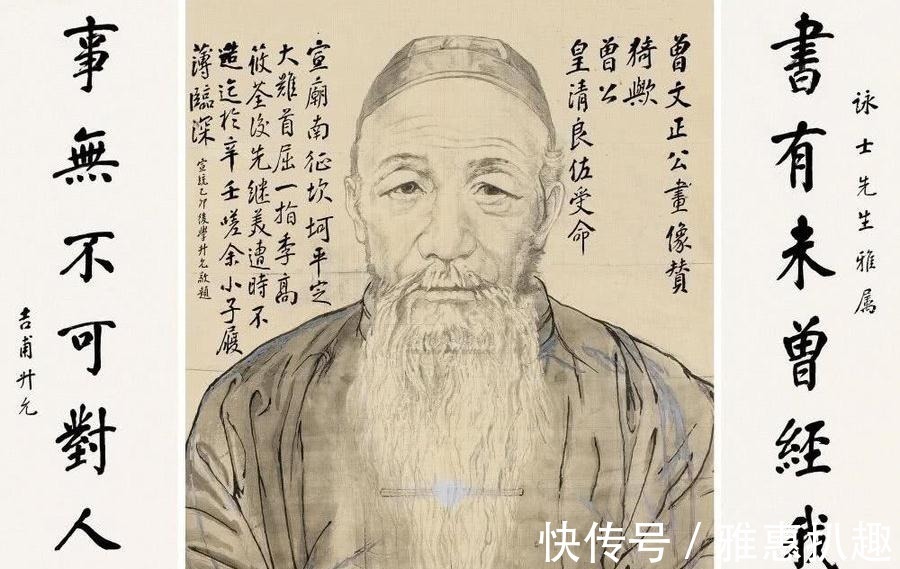 詠士先生雅属
書有未曾經我
曾文正公畫像贊
猗歟
曾公
皇清良佐受命
宣廟南征坎坷平定
大難首屈一指季高
筱荃後先継美遭時不
造迄於辛壬嗟余小子履
薄臨深
宣統乙卯後學升允敬題
事無不可對人
吉甫升允
快传号 / 雅惠扒趣